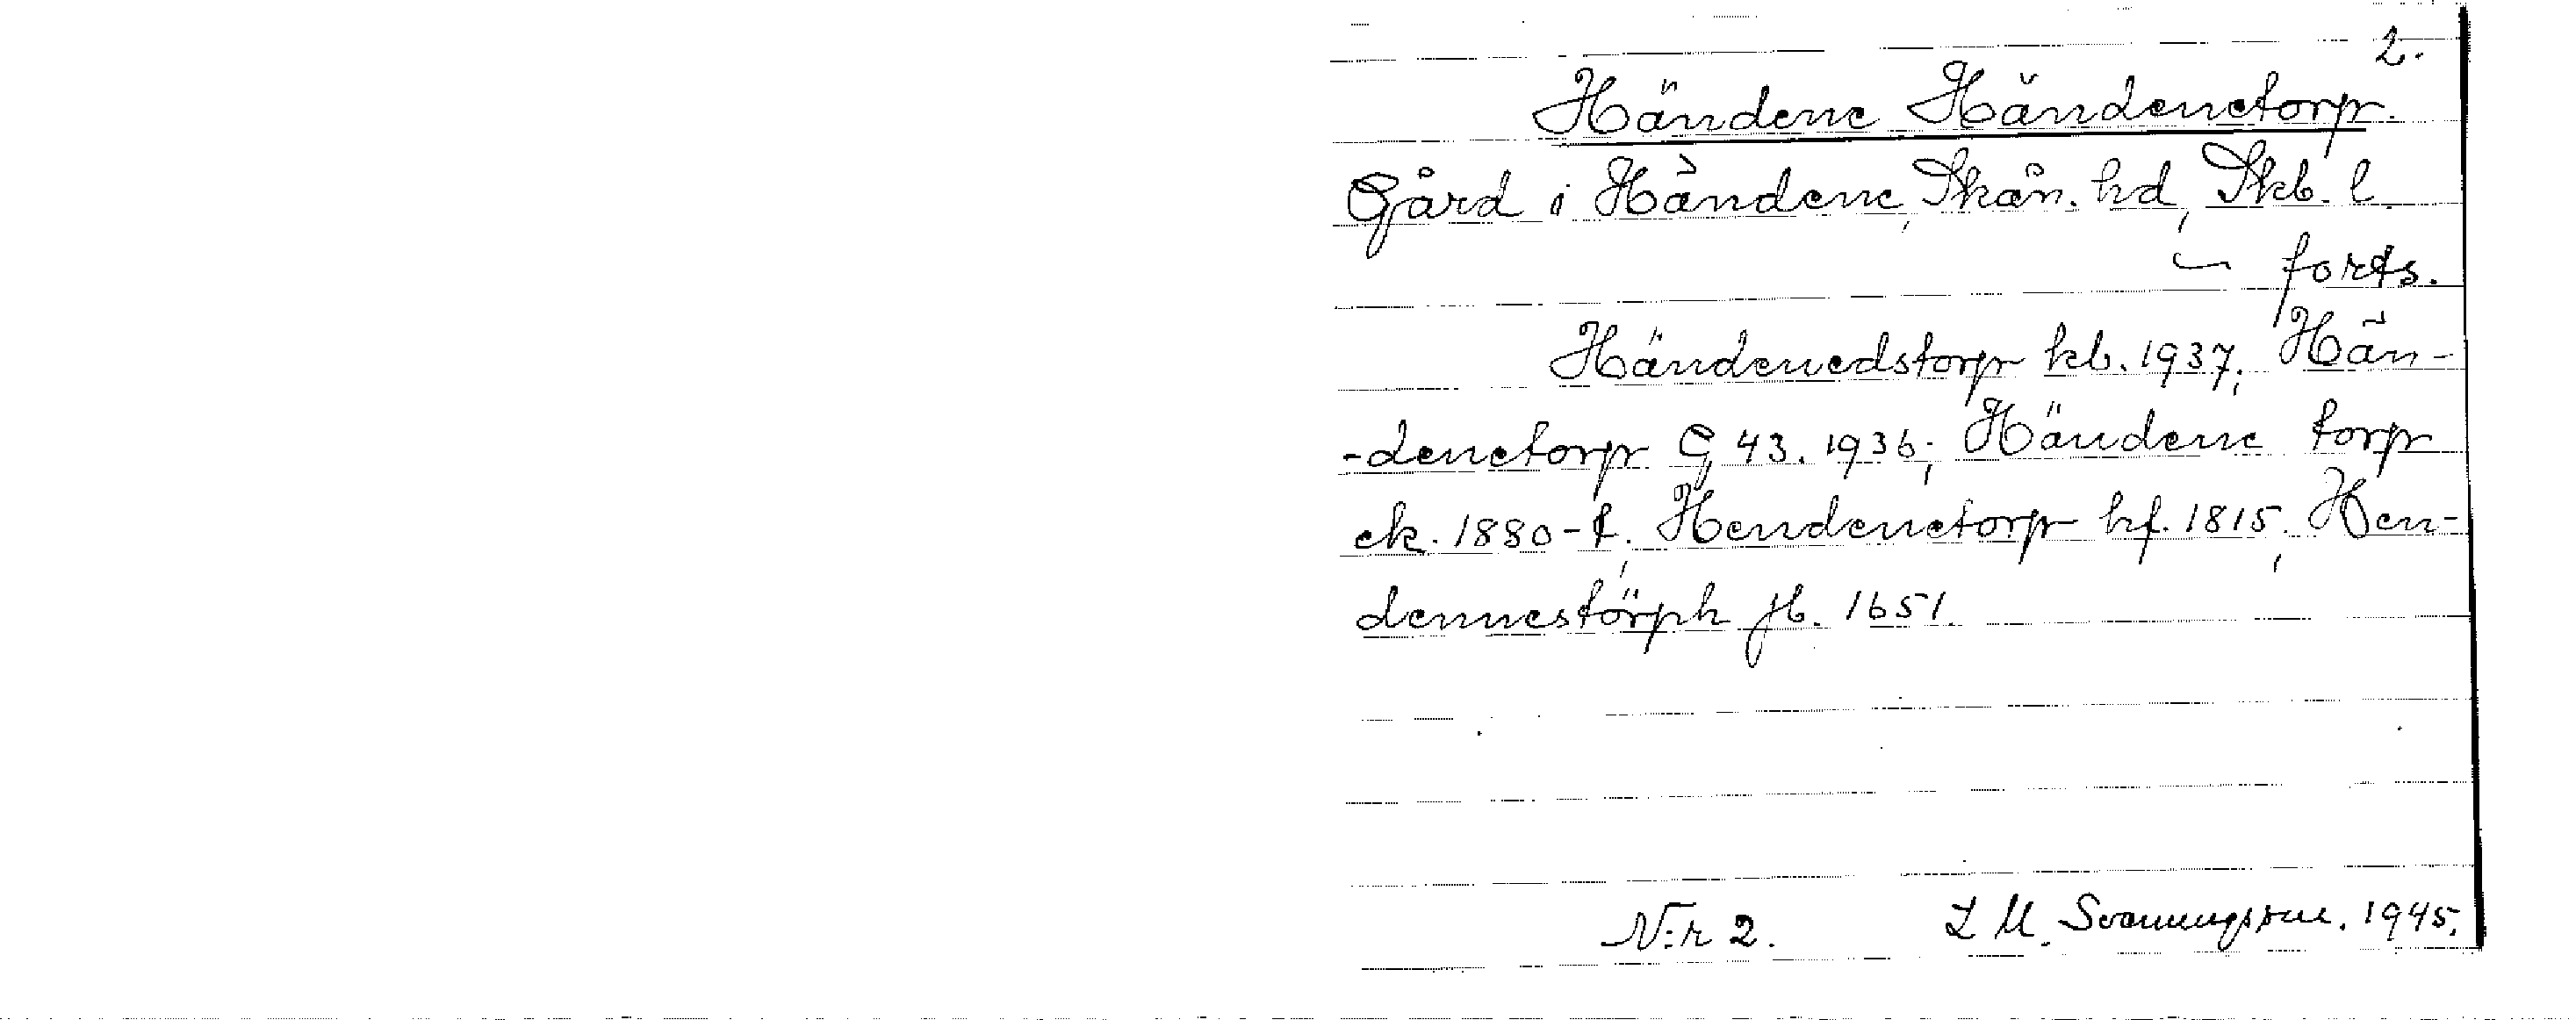 2.
Händene Händenetorp.
Gård i Händene, Skån. hd, Skb. l.
forts.
Händenedstorp kb. 1937; Hän-
-denetorp G, 43. 1936; Händene torp
ek. 1880-t; Hendenetorp hf. 1815; Hen-
dennestörph jb. 1651.
N:r 2. L M. Svenungsson. 1945.